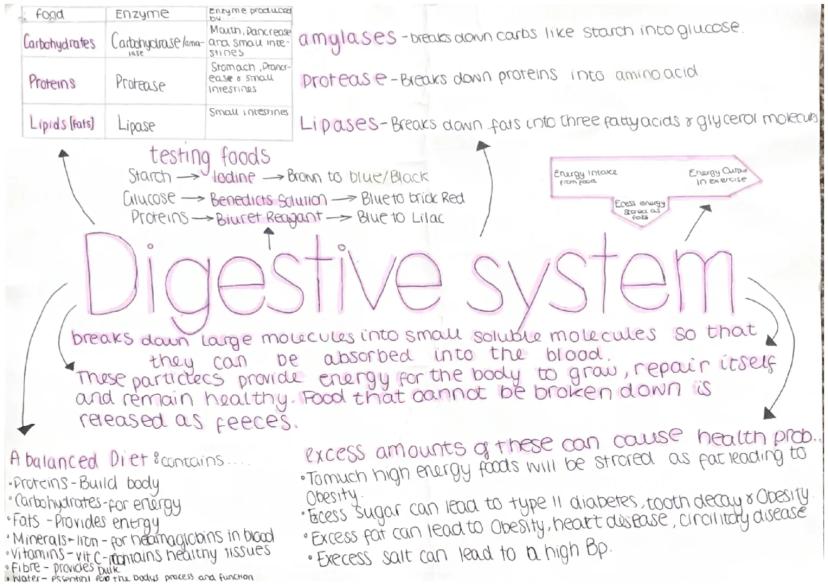 food Enzyme Enzyme produced by
Carbohydrates Carbohydrase Mouth, Pancrease and small intestines
Proteins Protease Stomach, Pancrease & small intestines
Lipids [fats] Lipase Small intestines
amylases - breaks down carbs like starch into glucose.
Protease - Breaks down proteins into amino acid
Lipases - Breaks down fats into three fatty acids & glycerol molecules
testing foods
Starch → Iodine → Brown to blue/Black
Glucose → Benedicts Solution → Blue to brick Red
Proteins → Biuret Reagant → Blue to Lilac
Energy Intake from food
Energy Output in exercise
Ecess energy stored as fats
Digestive system
breaks down large molecules into small soluble molecules so that
they can be absorbed into the blood.
These particlecs provide energy for the body to grow, repair itself
and remain healthy. Food that cannot be broken down is
released as feeces.
A balanced Diet contains....
•Proteins-Build body
•Carbohydrates-for energy
•Fats - Provides energy
•Minerals-Iron - for heamaglobins in blood
•Vitamins- vit C- mantains healthy tissues
•Fibre - provides bulk
•Water - essential for the bodys process and function
excess amounts of these can cause health prob..
•Tomuch high energy foods will be strored as fat leading to
Obesity.
•Excess sugar can lead to type 11 diabetes, tooth decay & Obesity
•Excess fat can lead to Obesity, heart disease, circulitory disease
•Execess salt can lead to a high Bp.